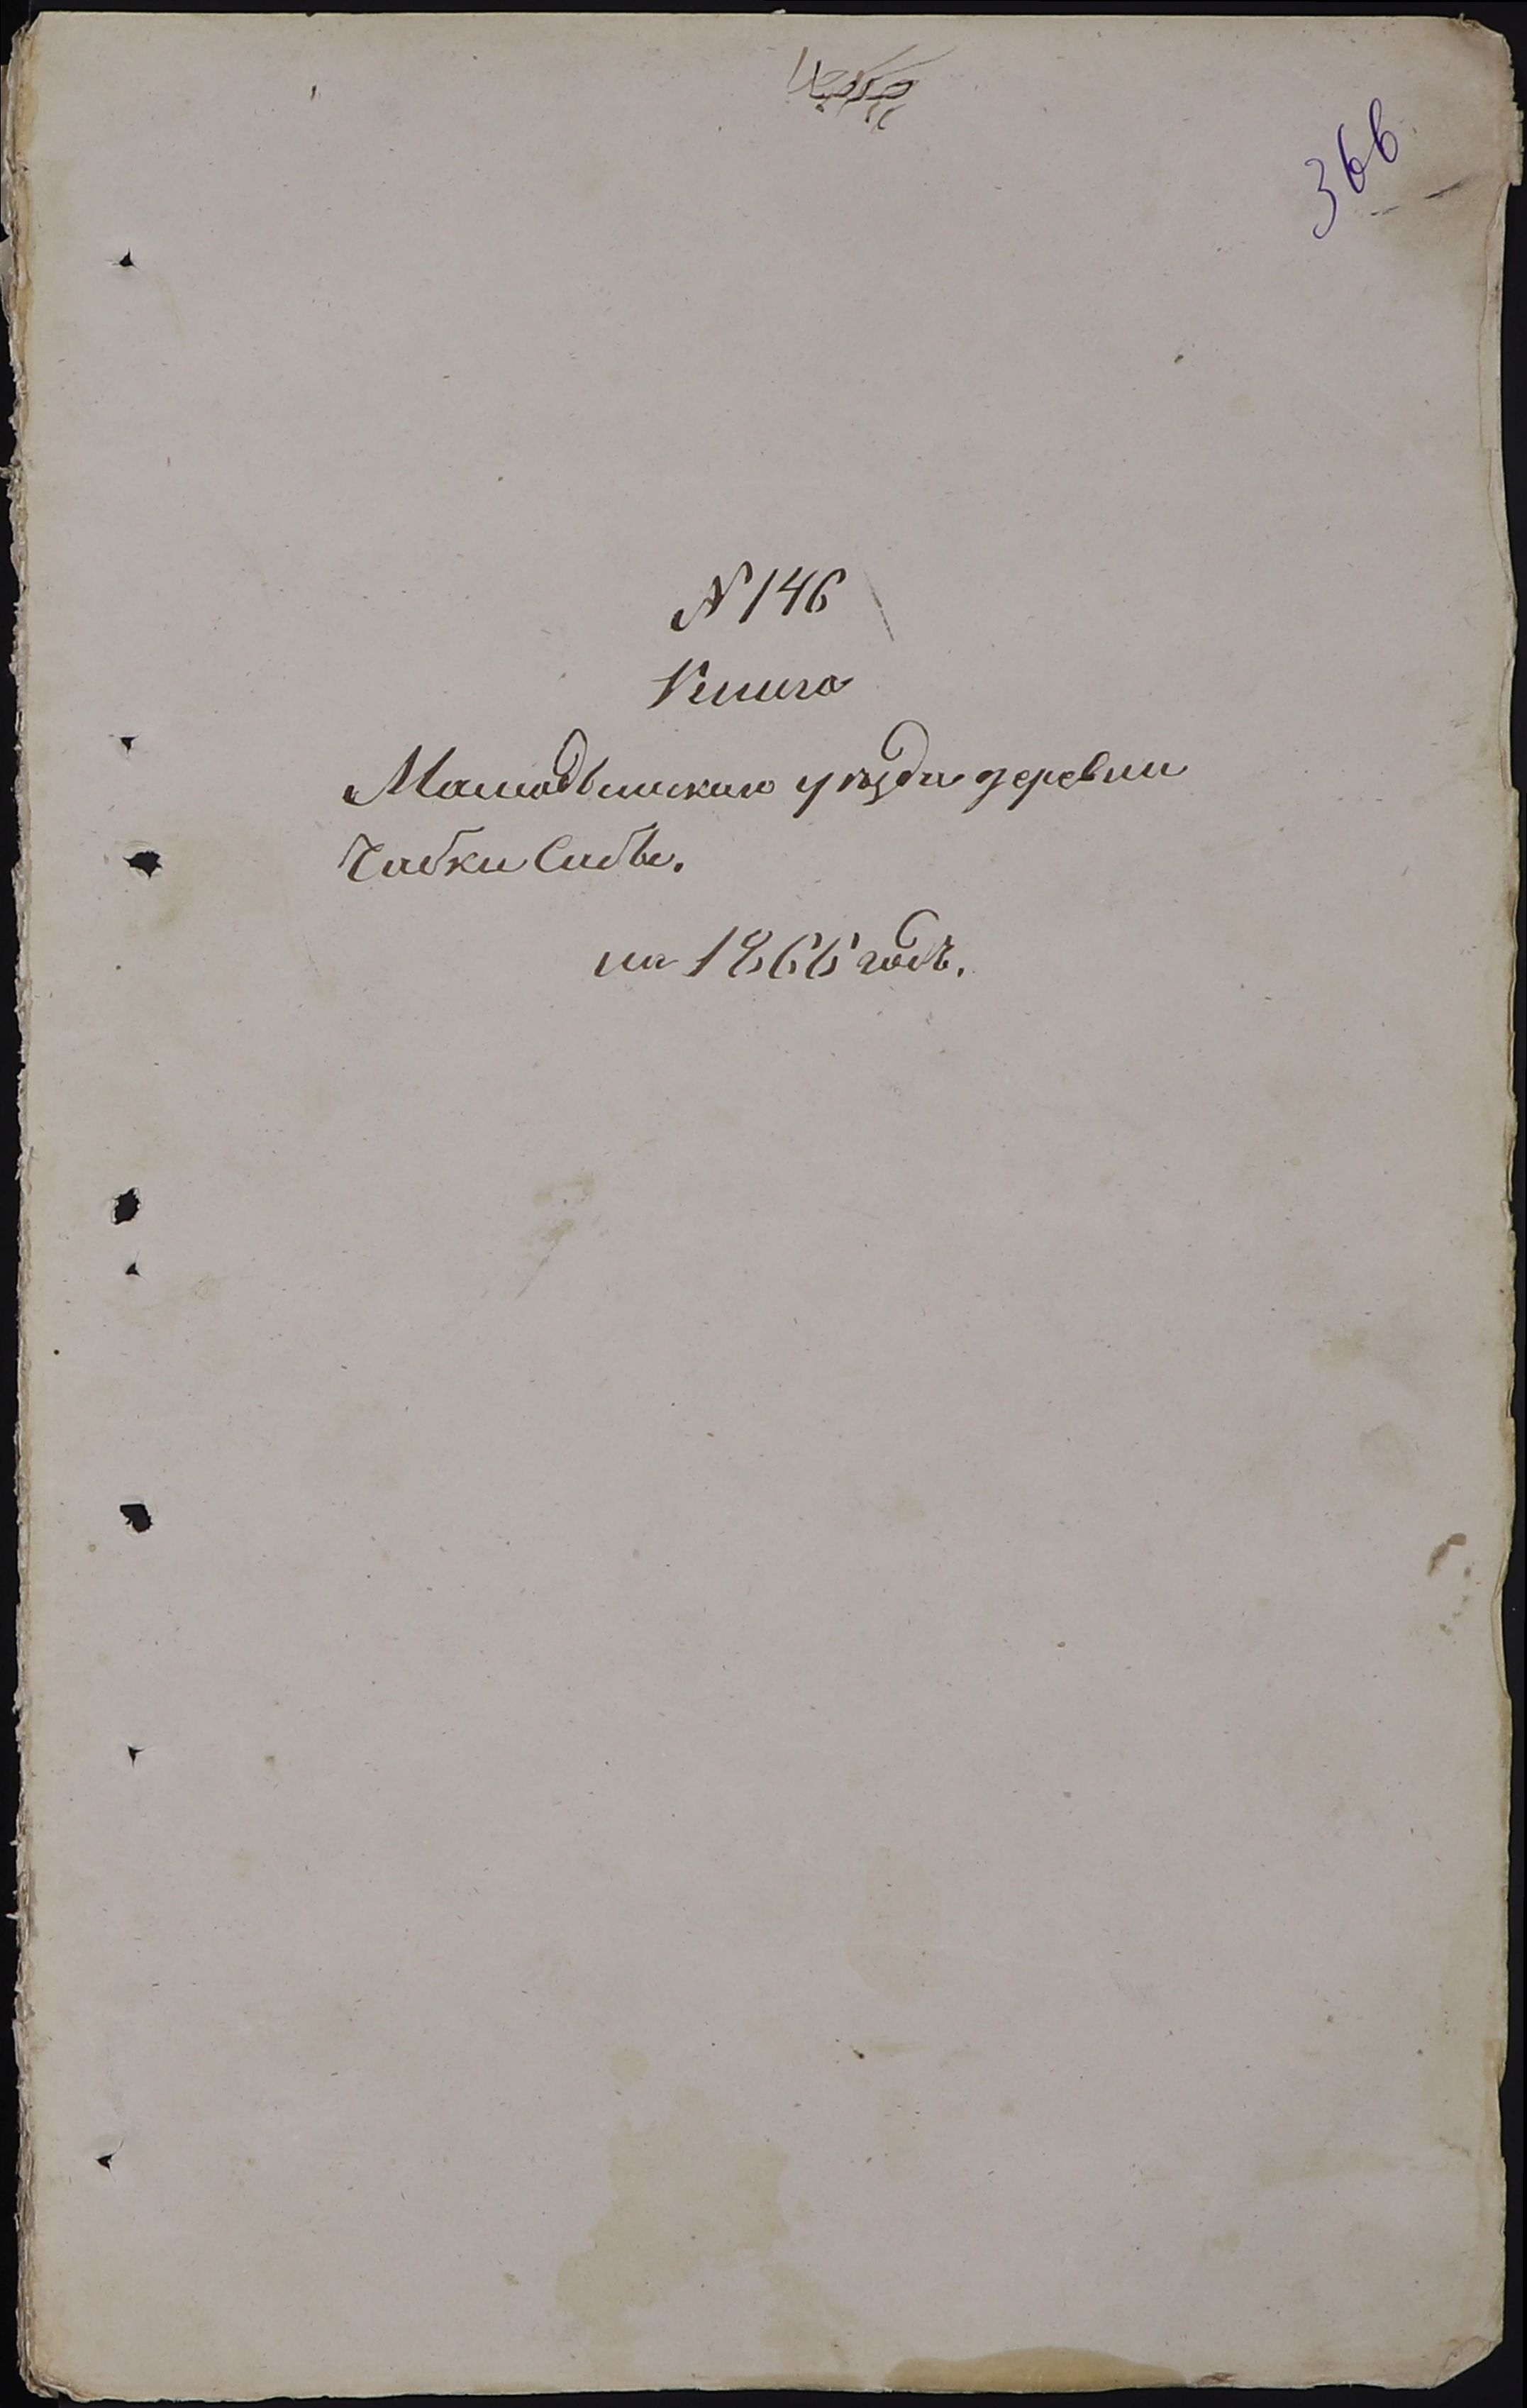 366
N 146
Книга
Мамадышскаго уѣзда деревни
Чабки Сабы.
на 1866 годъ.